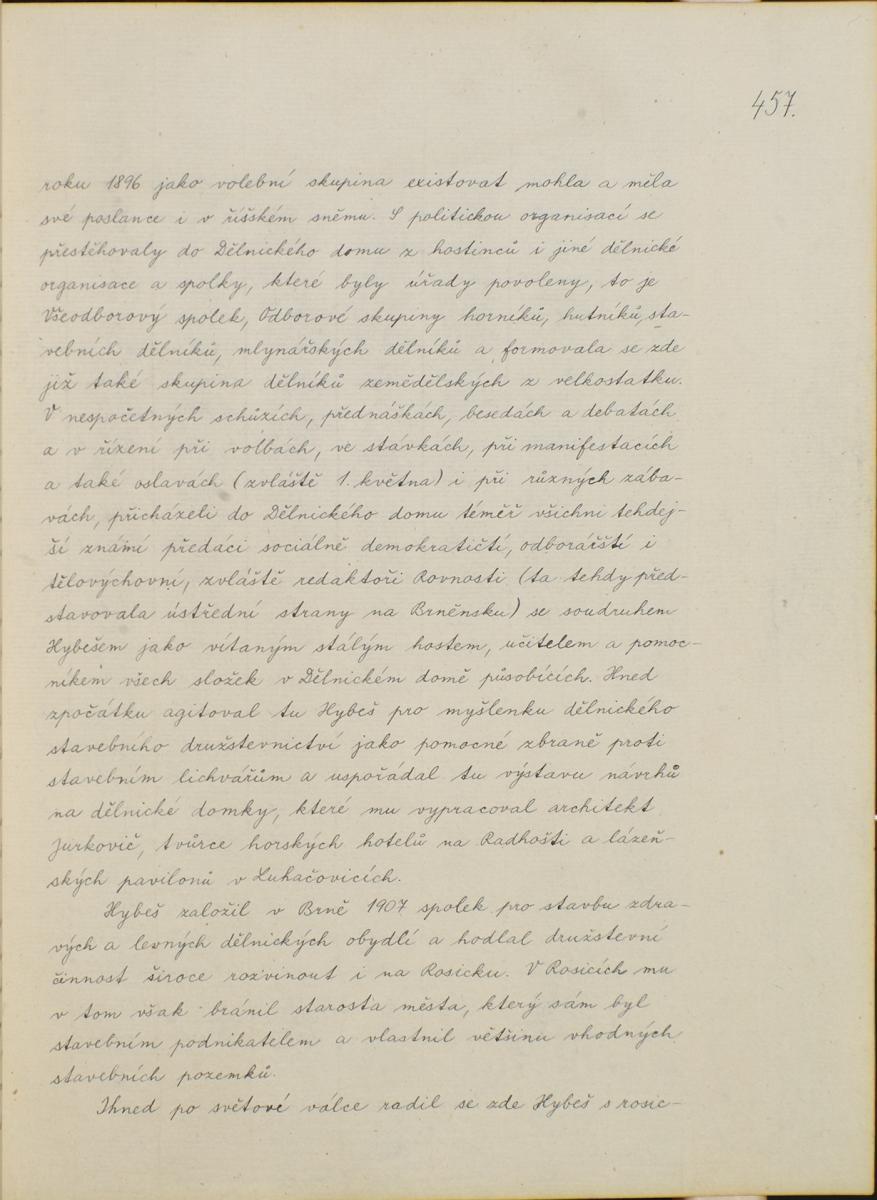 457.
roku 1896 jako volební skupina existovat mohla a měla
své poslance i v říšském sněmu. S politickou organisací se
přestěhovaly do Dělnického domu z hostinců i jiné dělnické
organisace a spolky, které byly úřady povoleny, to je
Všeodborový spolek, Odborové skupiny horníků, hutníků, sta-
vebních dělníků, mlynářských dělníků a formovala se zde
již také skupina dělníků zemědělských z velkostatku.
V nespočetných schůzích, přednáškách, besedách a debatách
a v řízení při volbách, ve stávkách, při manifestacích
a také oslavách (zvláště 1. května) i při různých zába-
vách, přicházeli do Dělnického domu téměř všichni tehdej-
ší známí předáci sociálně demokratičtí, odborářští i
tělovýchovní, zvláště redaktoři Rovnosti (ta tehdy před-
stavovala ústřední strany na Brněnsku) se soudruhem
Hybešem jako vítaným stálým hostem, učitelem a pomoc-
níkem všech složek v Dělnickém domě působících. Hned
zpočátku agitoval tu Hybeš pro myšlenku dělnického
stavebního družstevnictví jako pomocné zbraně proti
stavebním lichvářům a uspořádal tu výstavu návrhů
na dělnické domky, které mu vypracoval architekt
Jurkovič, tvůrce horských hotelů na Radhošti a lázeň-
ských pavilonů v Luhačovicích.
Hybeš založil v Brně 1907 spolek pro stavbu zdra-
vých a levných dělnických obydlí a hodlal družstevní
činnost široce rozvinout i na Rosicku. V Rosicích mu
v tom však bránil starosta města, který sám byl
stavebním podnikatelem a vlastnil většinu vhodných
stavebních pozemků.
Ihned po světové válce radil se zde Hybeš s rosic-